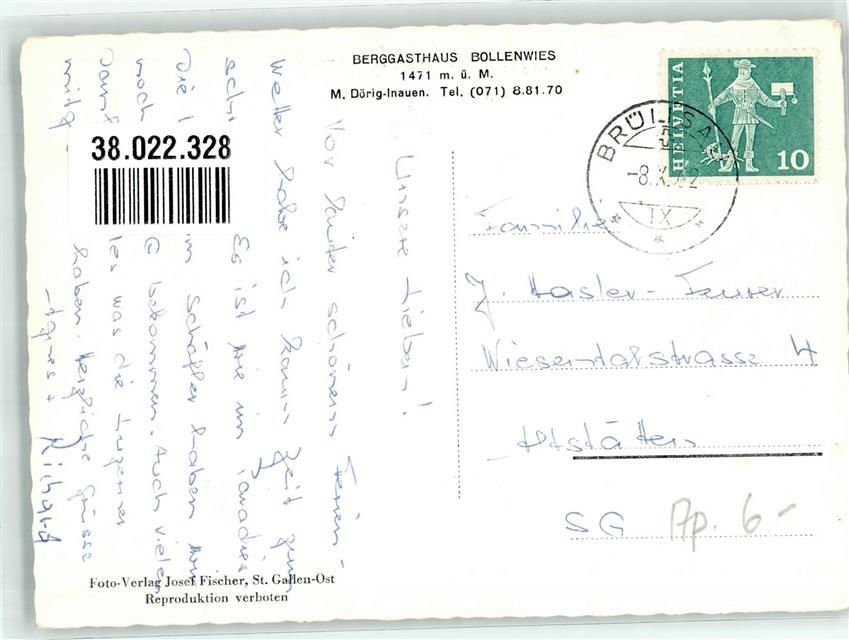 BERGGASTHAUS BOLLENWIES
1471 m. ü. M.
M. Dörig-Inauen. Tel. (071) 8.81.70
HELVETIA
10
BRÜLISAU
-8.X.
IX
38.022.328
Unsere Lieben!
Vor lauter schönem Ferien-
wetter habe ich kaum Zeit zum
schr
Es ist wie im Paradies
Die
im Schäfler haben wir
noch
bekommen. Auch vielen
Dank
les was die Luzerner
mitg
haben. Herzliche Grüsse
Agnes + Richard
Familie
J. Hasler-Feurer
Wiesentalstrasse 4
Altstätten
SG
Ap. 6-
Foto-Verlag Josef Fischer, St. Gallen-Ost
Reproduktion verboten